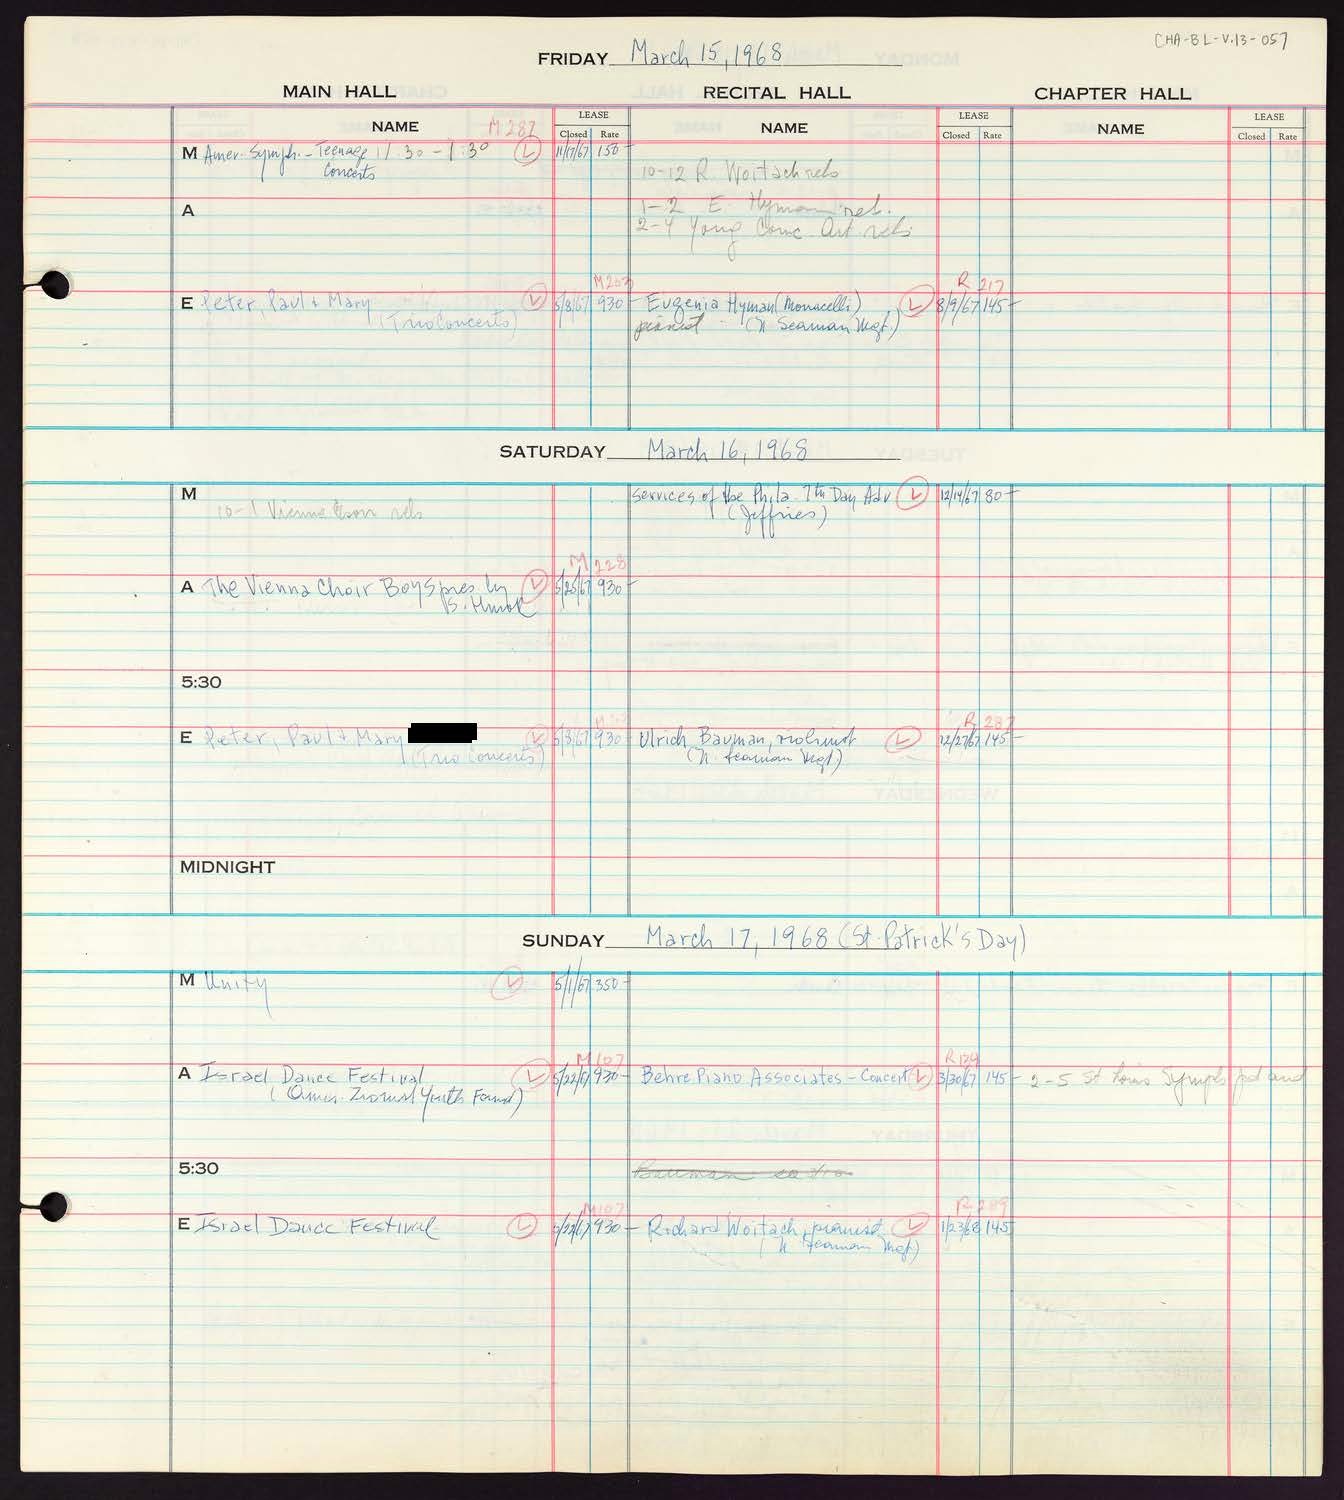 CHA-BL-V.13-057
FRIDAY March 15, 1968
MAIN HALL RECITAL HALL CHAPTER HALL
NAME M 287 LEASE NAME LEASE NAME LEASE
Closed Rate Closed Rate Closed Rate
M Amer. Symph. - Teenage 11:30 - 1:30 L 11/17/67 150-
Concerts
10-12 R. Woitach rehs
A
1-2 E. Hyman reh.
2-4 Young Conc. Art. rehs
M 207 R 217
E Peter, Paul & Mary L 5/8/67 930- Eugenia Hyman (Monacelli) L 8/9/67 145-
(Trio Concerts) pianist (N. Seaman Mgt.)
SATURDAY March 16, 1968
M Services of the Phila. 7th Day Adv L 12/14/67 80-
10-1 Vienna rehs (Jeffries)
M 228
A The Vienna Choir Boys pres. by L 5/25/67 930-
S. Hurok
5:30
R 287
E Peter, Paul & Mary L 5/8/67 930- Ulrich Bauman, violinist L 12/27/67 145-
(Trio Concerts) (N. Seaman Mgt.)
MIDNIGHT
SUNDAY March 17, 1968 (St. Patrick's Day)
M Unity L 5/1/67 350-
M 107 R 124
A Israel Dance Festival L 5/22/67 930- Behre Piano Associates - Concert L 3/30/67 145- 2-5 St Louis Symph
(Amer. Zionist Youth Found)
5:30 Bauman
M107 R 289
E Israel Dance Festival L 5/22/67 930- Richard Woitach, pianist L 1/23/68 145
(N. Seaman Mgt.)